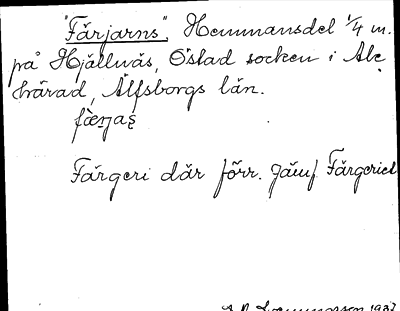 "Färjarns", Hemmansdel 1/4 m.
på Hjällnäs, Östad socken i Ale
härad, Älfsborgs län.
Färgeri där förr. Jämf Färgeriet
1937